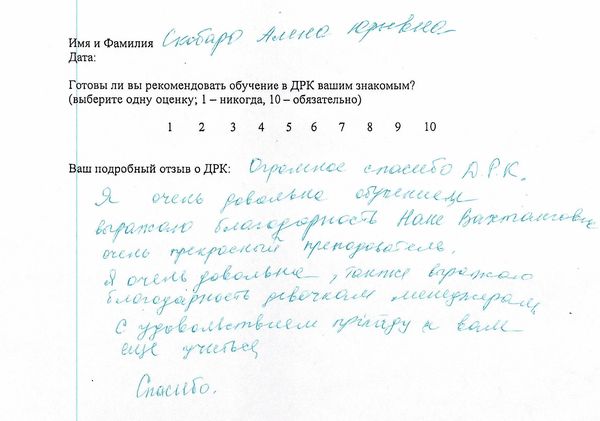 Имя и Фамилия Скобаро Алена Юрьевна
Дата:
Готовы ли вы рекомендовать обучение в ДРК вашим знакомым?
(выберите одну оценку; 1 – никогда, 10 – обязательно)
1 2 3 4 5 6 7 8 9 10
Ваш подробный отзыв о ДРК: Огромное спасибо Д.Р.К.
Я очень довольна обучением
выражаю благодарность Нане Вахтанговне
очень прекрасный преподователь.
Я очень довольна, также выражаю
благодарность девочкам менеджерам,
С удовольствием прийду к вам
ещё учиться
Спасибо.